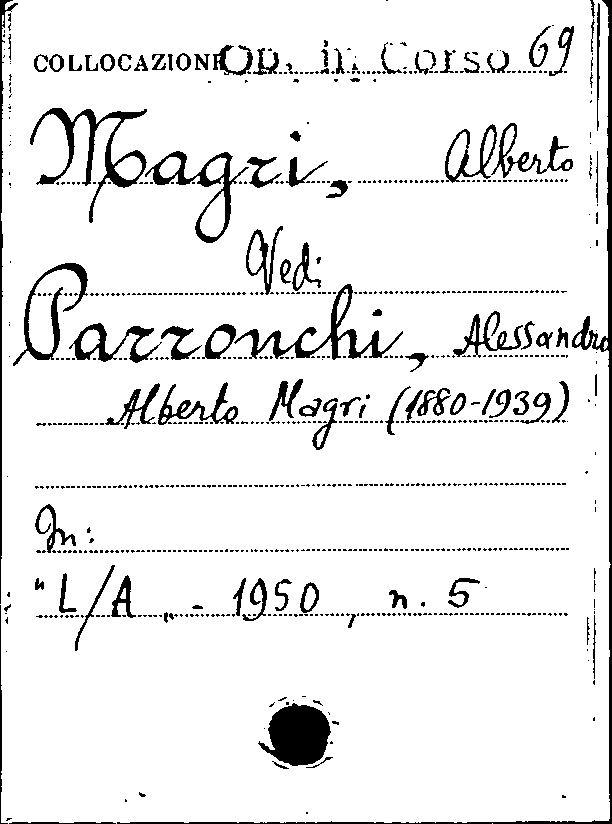 COLLOCAZIONE Op. in Corso 69
Magri, Alberto
Vedi
Parronchi, Alessandro
Alberto Magri (1880-1939)
In:
"L/A„ - 1950, n. 5